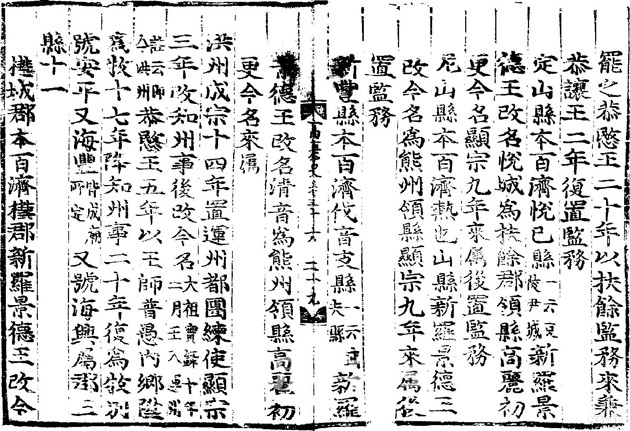 罷之恭愍王二十年以扶餘監務來兼
恭讓王二年復置監務
定山縣本百濟悅已縣一云豆陵尹城新羅景
德王改名悅城爲扶餘郡領縣高麗初
更今名顯宗九年來屬後置監務
尼山縣本百濟熱也山縣新羅景德王
改今名爲熊州領縣顯宗九年來屬後
置監務
新豐縣本百濟伐音支縣一云武夫縣新羅
高麗史卷五十六
景德王改名清音爲熊州領縣高麗初
更今名來屬
洪州成宗十四年置運州都團練使顯宗
三年改知州事後改今名大祖實錄十年三月王入運州
註云卽今洪州恭愍王五年以王師普愚內鄉陞
爲牧十七年降知州事二十年復爲牧別
號安平又海豐皆成廟所定又號海興屬郡三
縣十一
槥城郡本百濟槥郡新羅景德王改今